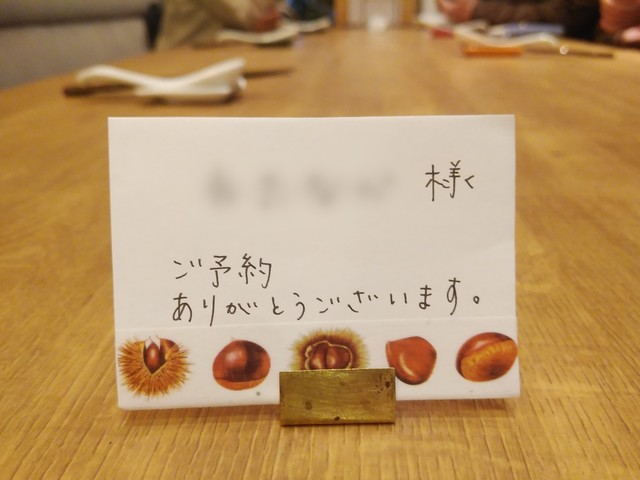 様
ご予約
ありがとうございます。